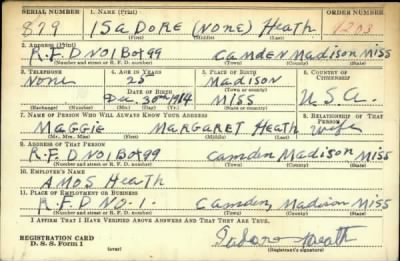 SERIAL NUMBER 1. NAME (Print) ORDER NUMBER
879 ISadore (None) Heath 1203
(First) (Middle) (Last)
2. ADDRESS (Print)
R.F.D NO1 Box 99 Camden Madison Miss
(Number and street or R. F. D. number) (Town) (County) (State)
3. TELEPHONE 4. AGE IN YEARS 5. PLACE OF BIRTH 6. COUNTRY OF CITIZENSHIP
None 25 Madison
DATE OF BIRTH (Town or county)
Dec 30th 1914 Miss U.S.A.
(Exchange) (Number) (Mo.) (Day) (Yr.) (State or country)
7. NAME OF PERSON WHO WILL ALWAYS KNOW YOUR ADDRESS 8. RELATIONSHIP OF THAT PERSON
Maggie Margaret Heath wife
(Mr., Mrs., Miss) (First) (Middle) (Last)
9. ADDRESS OF THAT PERSON
R.F.D NO1 Box 99 Camden Madison Miss
(Number and street or R. F. D. number) (Town) (County) (State)
10. EMPLOYER'S NAME
Amos Heath
11. PLACE OF EMPLOYMENT OR BUSINESS
R.F.D NO-1- Camden, Madison Miss
(Number and street or R. F. D. number) (Town) (County) (State)
I AFFIRM THAT I HAVE VERIFIED ABOVE ANSWERS AND THAT THEY ARE TRUE.
REGISTRATION CARD
D. S. S. Form 1 (over) Heath
(Registrant's signature)